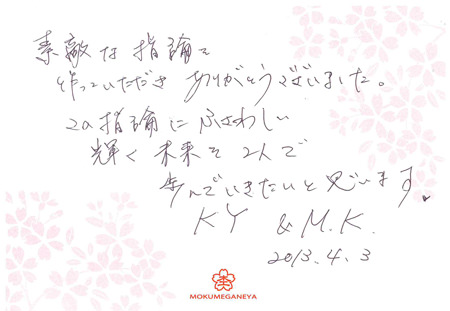 素敵な指輪を
作っていただき ありがとうございました。
この指輪にふさわしい
輝く未来を2人で
歩んでいきたいと思います。
KY & M.K.
2013.4.3
MOKUMEGANEYA